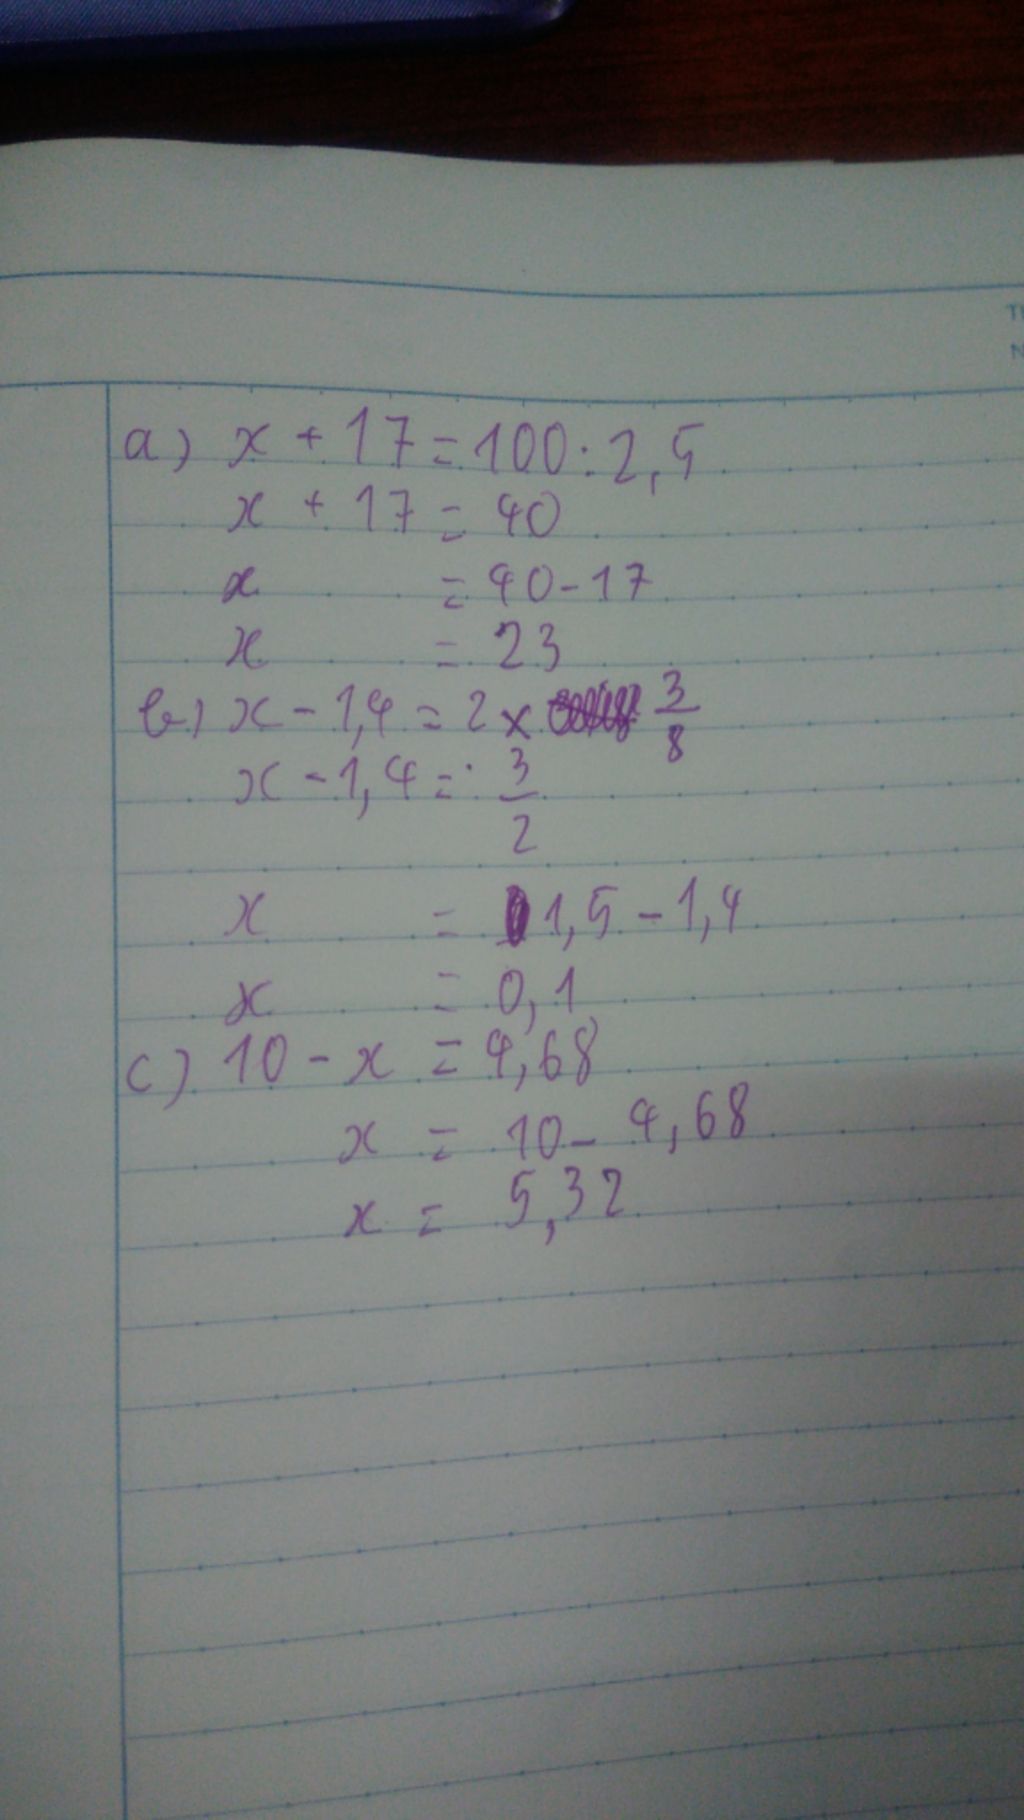 a) x + 17 = 100 : 2,5
x + 17 = 40
x = 40 - 17
x = 23
b) x - 1,4 = 2 x 3/8
x - 1,4 = 3/2
x = 1,5 - 1,4
x = 0,1
c) 10 - x = 4,68
x = 10 - 4,68
x = 5,32